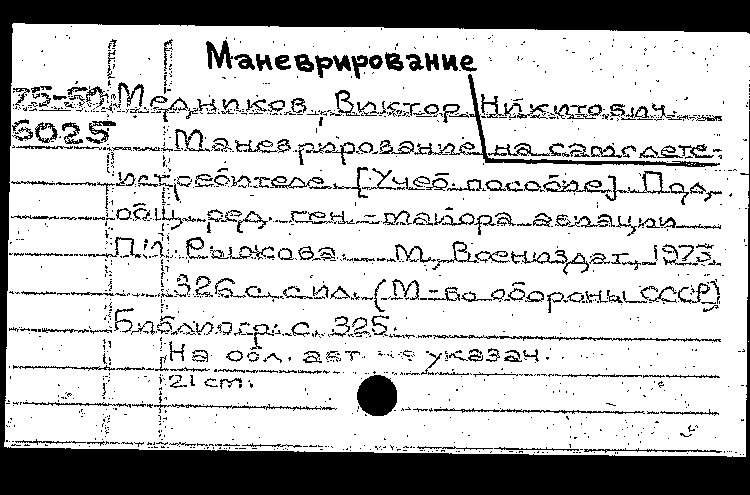 Маневрирование
75-50 Медников, Виктор Никитович.
6025 Маневрирование на самолете-
истребителе. [Учеб. пособие] Под
общ. ред. ген.-майора авиации
П.И. Рыжкова. М., Воениздат, 1975.
326 с. с ил. (М-во обороны СССР)
Библиогр.: с. 325.
На обл. авт. не указан.
21 cm.